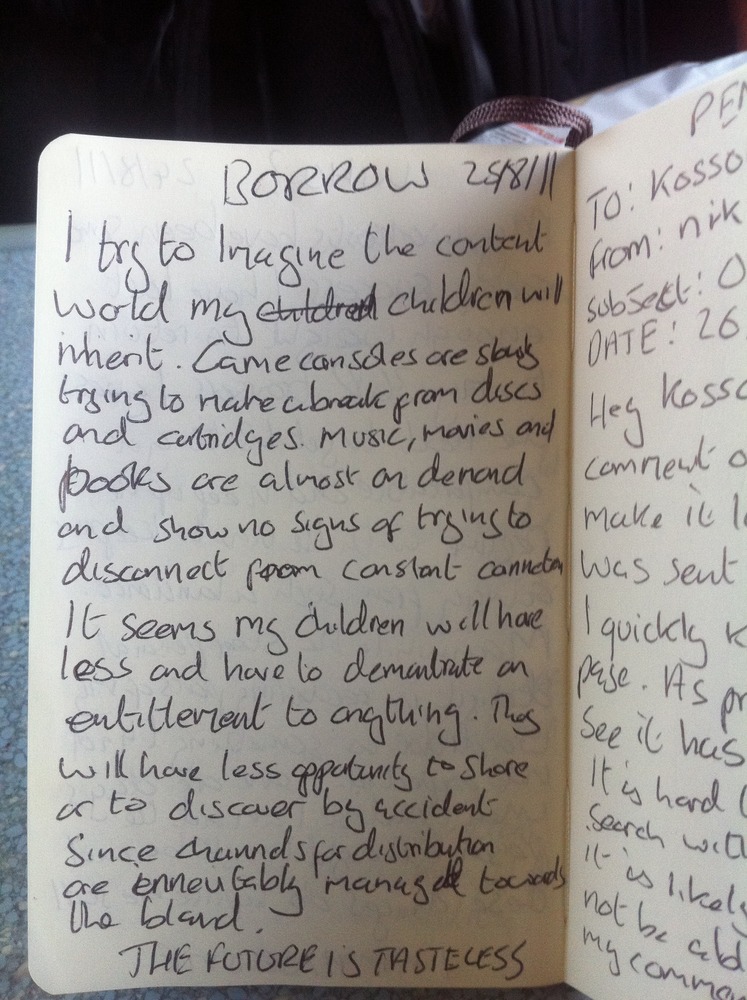 BORROW 25/8/11
I try to Imagine the content
world my children children will
inherit. Game consoles are slowly
trying to make a break from discs
and catridges. Music, movies and
books are almost on demand
and show no signs of trying to
disconnect from constant
It seems my children will have
less and have to demonstrate an
entitlement to anything. They
will have less oppotunity to share
or to discover by accident
Since channels for distribution
are towards
the bland.
THE FUTURE IS TASTELESS
PEN
TO: Kosso
from: nik
subject: O
DATE: 26
Hey Kosso
comment o
make it l
was sent
I quickly k
page. As pr
See it has
It is hard
Search with
It is likely
not be abl
my comme